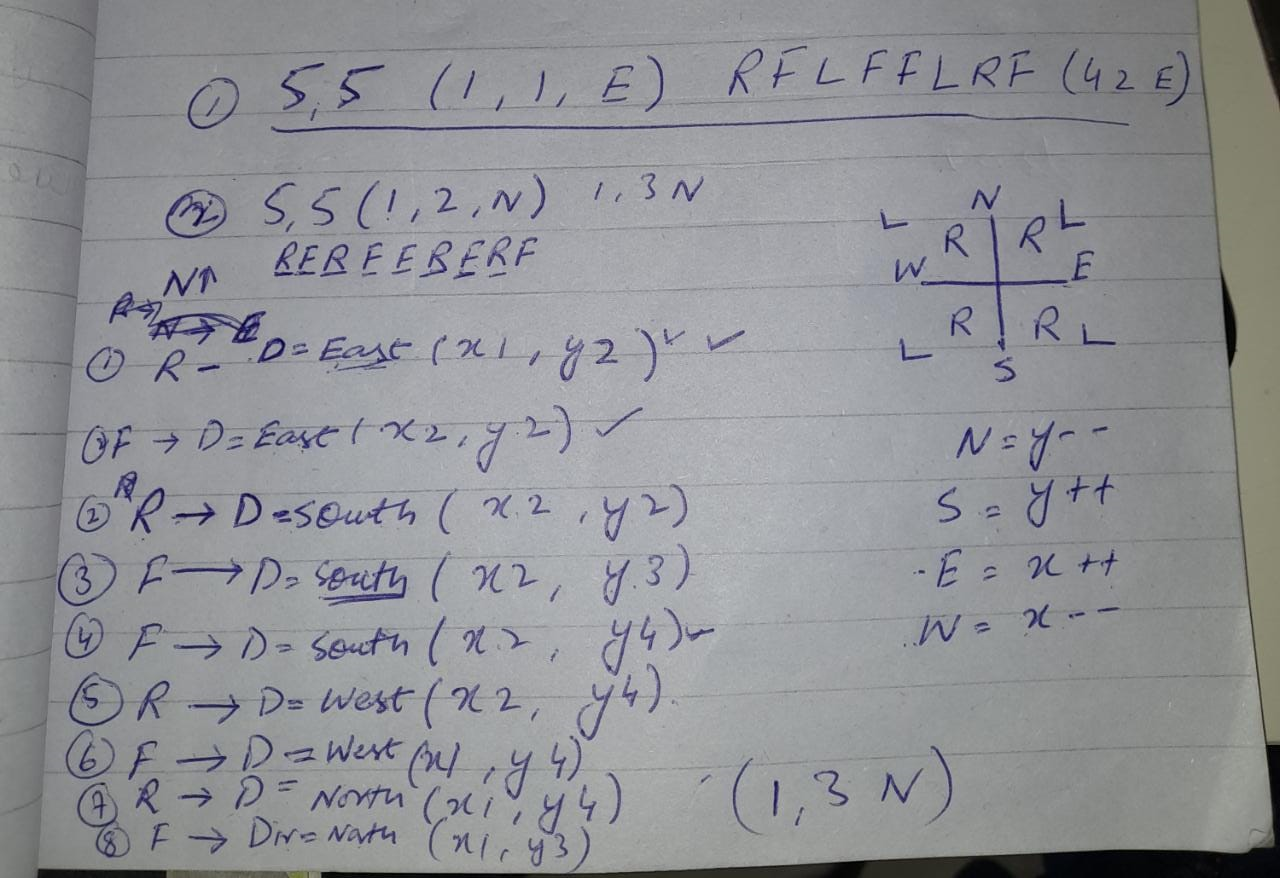 ① 5,5 (1,1,E) RFLFFLRF (42E)
② 5,5 (1,2,N) 1,3 N
RFRFFRFRF
N↑
R→
N → E
① R - D = East (x1, y2) ✓ ✓
F → D = East (x2, y2) ✓
② R → D = South (x2, y2)
③ F → D = South (x2, y3)
④ F → D = South (x2, y4) ✓
⑤ R → D = West (x2, y4).
⑥ F → D = West (x1, y4)
⑦ R → D = North (x1, y4)
⑧ F → Dir = Noth (x1, y3)
N
L R R L
W E
L R R L
S
N = y--
S = y++
E = x++
W = x--
(1,3 N)